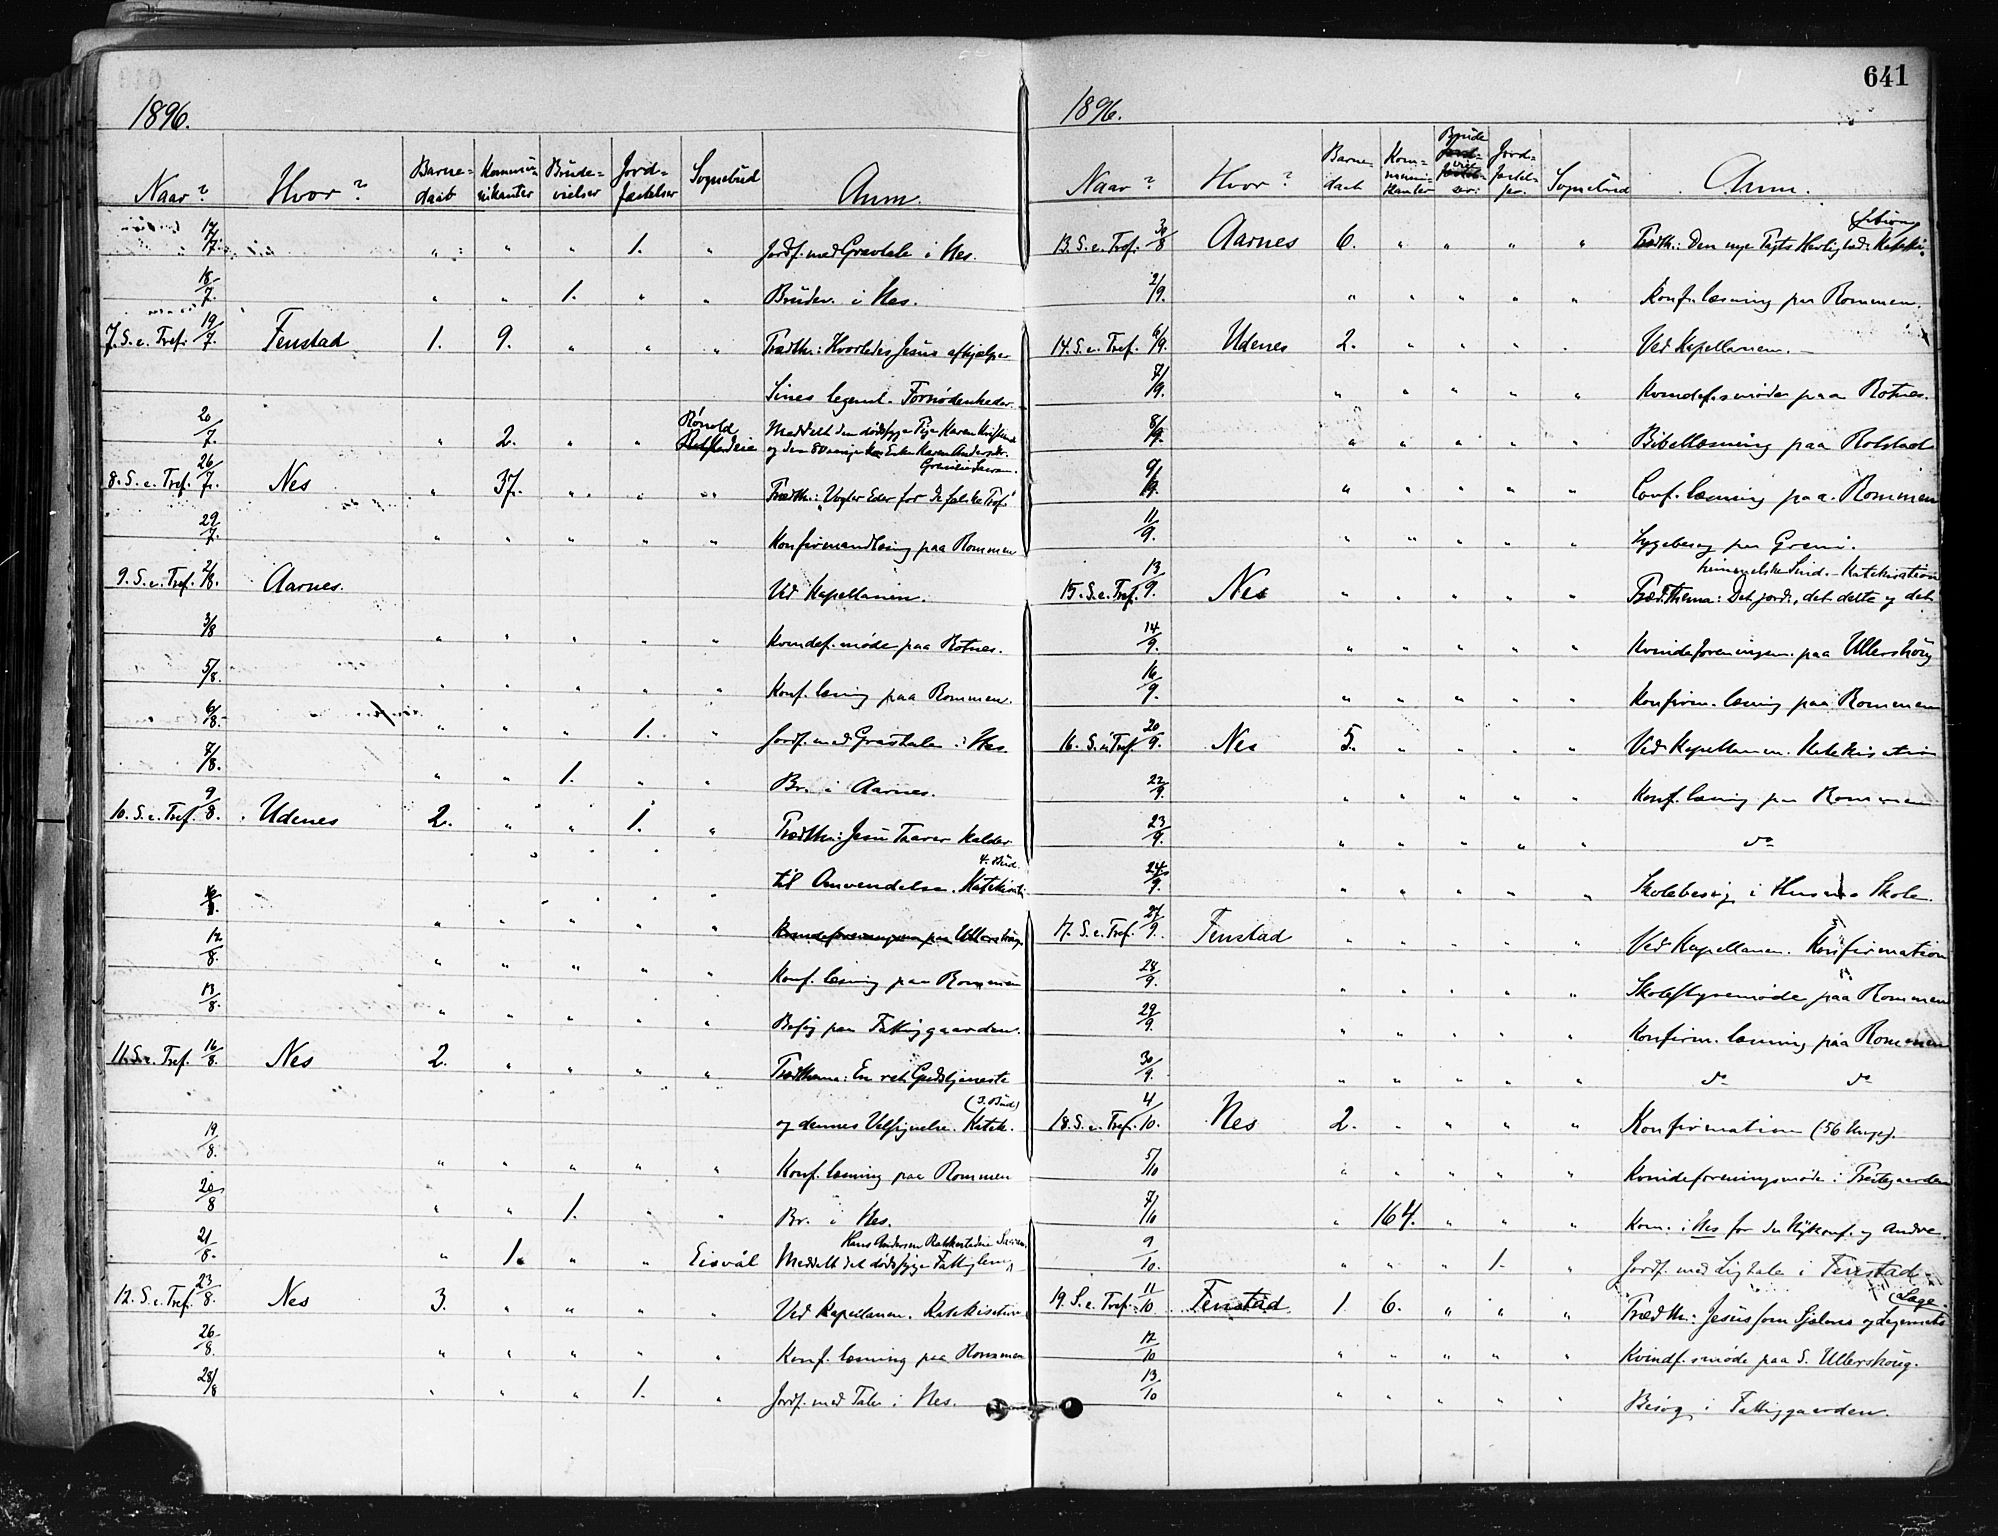 1896.
Naar? Hvor? Barne-daab Kommu-nikanter Brude-vielser Jord-fæstelser Sognebud Anm.
17/7. " " " 1. " Jordf. med Gravtale i Nes.
18/7. " " 1. " " Brudev. i Nes.
7. S. e. Tref. 19/7. Fenstad 1. 9. " " " Prædth.: Hvorledes Jesus afhjælper
Sines legeml. Fornødenheder.
20/7. " 2. " " Rønold Meddelt den dødssyge Pige Karen
og den 80 aarige Enke Karen
8. S. e. Tref. 26/7. Nes " 37. " " " Prædth.: "Vogter Eder for de falske Prof."
29/7. " " " " " Konfirmandlæsning paa Rommen
9. S. e. Tref. 2/8. Aarnes. Ved Kapellanen.
3/8 " " " " " Kvindef. møde paa Botnes.
5/8. " " " " " Konf. læsning paa Rommen.
6/8. " " " 1. " Jordf. med Gravtale i Nes.
7/8. " " 1. " " Br. i Aarnes.
10. S. e. Tref. 9/8. Udenes 2. " " 1. " Prædth.: Jesu Taarer kalder
4. Bud.
til Anvendelse. Katekisati
Kvindeforeningen paa Ullershoug.
12/8. " " " " " Konf. læsning paa Rommen
13/8. " " " " " Besøg paa Fattiggaarden.
11. S. e. Tref. 16/8. Nes 2. " " " " Prædthema: En ret Gudstjeneste
(3. Bud)
og dennes Velsignelse. Katek.
19/8. " " " " " Konf. læsning paa Rommen
20/8 " " 1. " " Br. i Nes.
21/8. " 1. " " Eisvål Meddelt det dødssyge Fattiglem
Hans Andersen
12. S. e. Tref. 23/8. Nes 3. " " " " Ved Kapellanen. Katekisation
26/8. " " " " " Konf. læsning paa Rommen
28/8 " " " 1. " Jordf. med Tale i Nes.
641
1896.
Naar? Hvor? Barne-daab Kom-muni-kanter Brude-viel-ser: Jord-fæstel-ser. Sognebud Anm.
13. S. e. Tref. 30/8 Aarnes 6. " " " " Prædth.: Den nye Pagts Herlighed. Kateki-
sation
2/9. " " " " " Konf. læsning paa Rommen.
14. S. e. Tref. 6/9. Udenes 2. " " " " Ved Kapellanen. –
7/9. " " " " " Kvindef.smøde paa Botnes.
8/9. " " " " " Bibellæsning paa Rolstad
9/9. " " " " " Conf. læsning paa Rommen
11/9. " " " " " Sygebesøg paa Greni.
himmelske Sind. – Katekisation
15. S. e. Tref. 13/9. Nes " " " " " Præd.thema: Det jord., det delte og det
14/9. " " " " " Kvindeforeningen paa Ullershoug
16/9. " " " " " Konfirm. læsning paa Rommen
16. S. e. Tref. 20/9. Nes 5. " " " " Ved Kapellanen. Katekisation
22/9. " " " " " Konf. læsning paa Rommen
23/9. " " " " " do
24/9. " " " " " Skolebesøg i Husmo Skole.
17. S. e. Tref. 27/9. Fenstad " " " " " Ved Kapellanen. Konfirmation
28/9. " " " " " Skolestyremøde paa Rommen
29/9. " " " " " Konfirm. læsning paa Rommen
30/9. " " " " " do do
18. S. e. Tref. 4/10. Nes 2. " " " " Konfirmation (56 Unge).
5/10 " " " " " Kvindeforeningsmøde i Prestegaarden
7/10 " 164. " " " Kom. i Nes for de Nykonf. og Andre.
9/10. " " " 1. " Jordf. med Ligtale i Fenstad
19. S. e. Tref. 11/10 Fenstad 1. 6. " " " Prædth.: Jesus som Sjælens og Legemets
Læge.
12/10 " " " " " Kvindf.smøde paa S. Ullershoug.
13/10 " " " " " Besøg i Fattiggaarden.